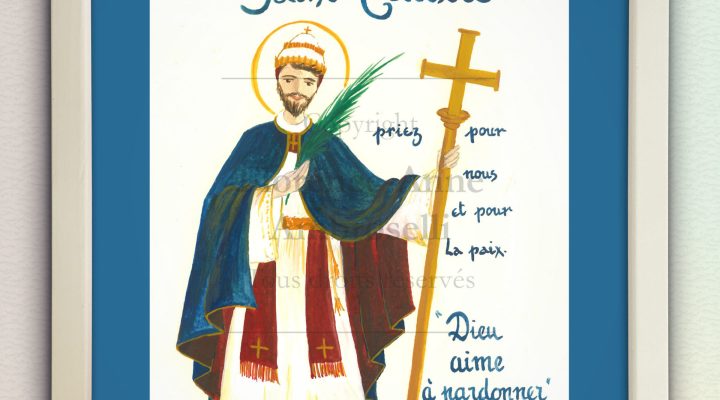 Saint
Copyright
priez pour
nous
Anne
et pour
la paix.
Tous droits réservés
"Dieu
aime
à pardonner"